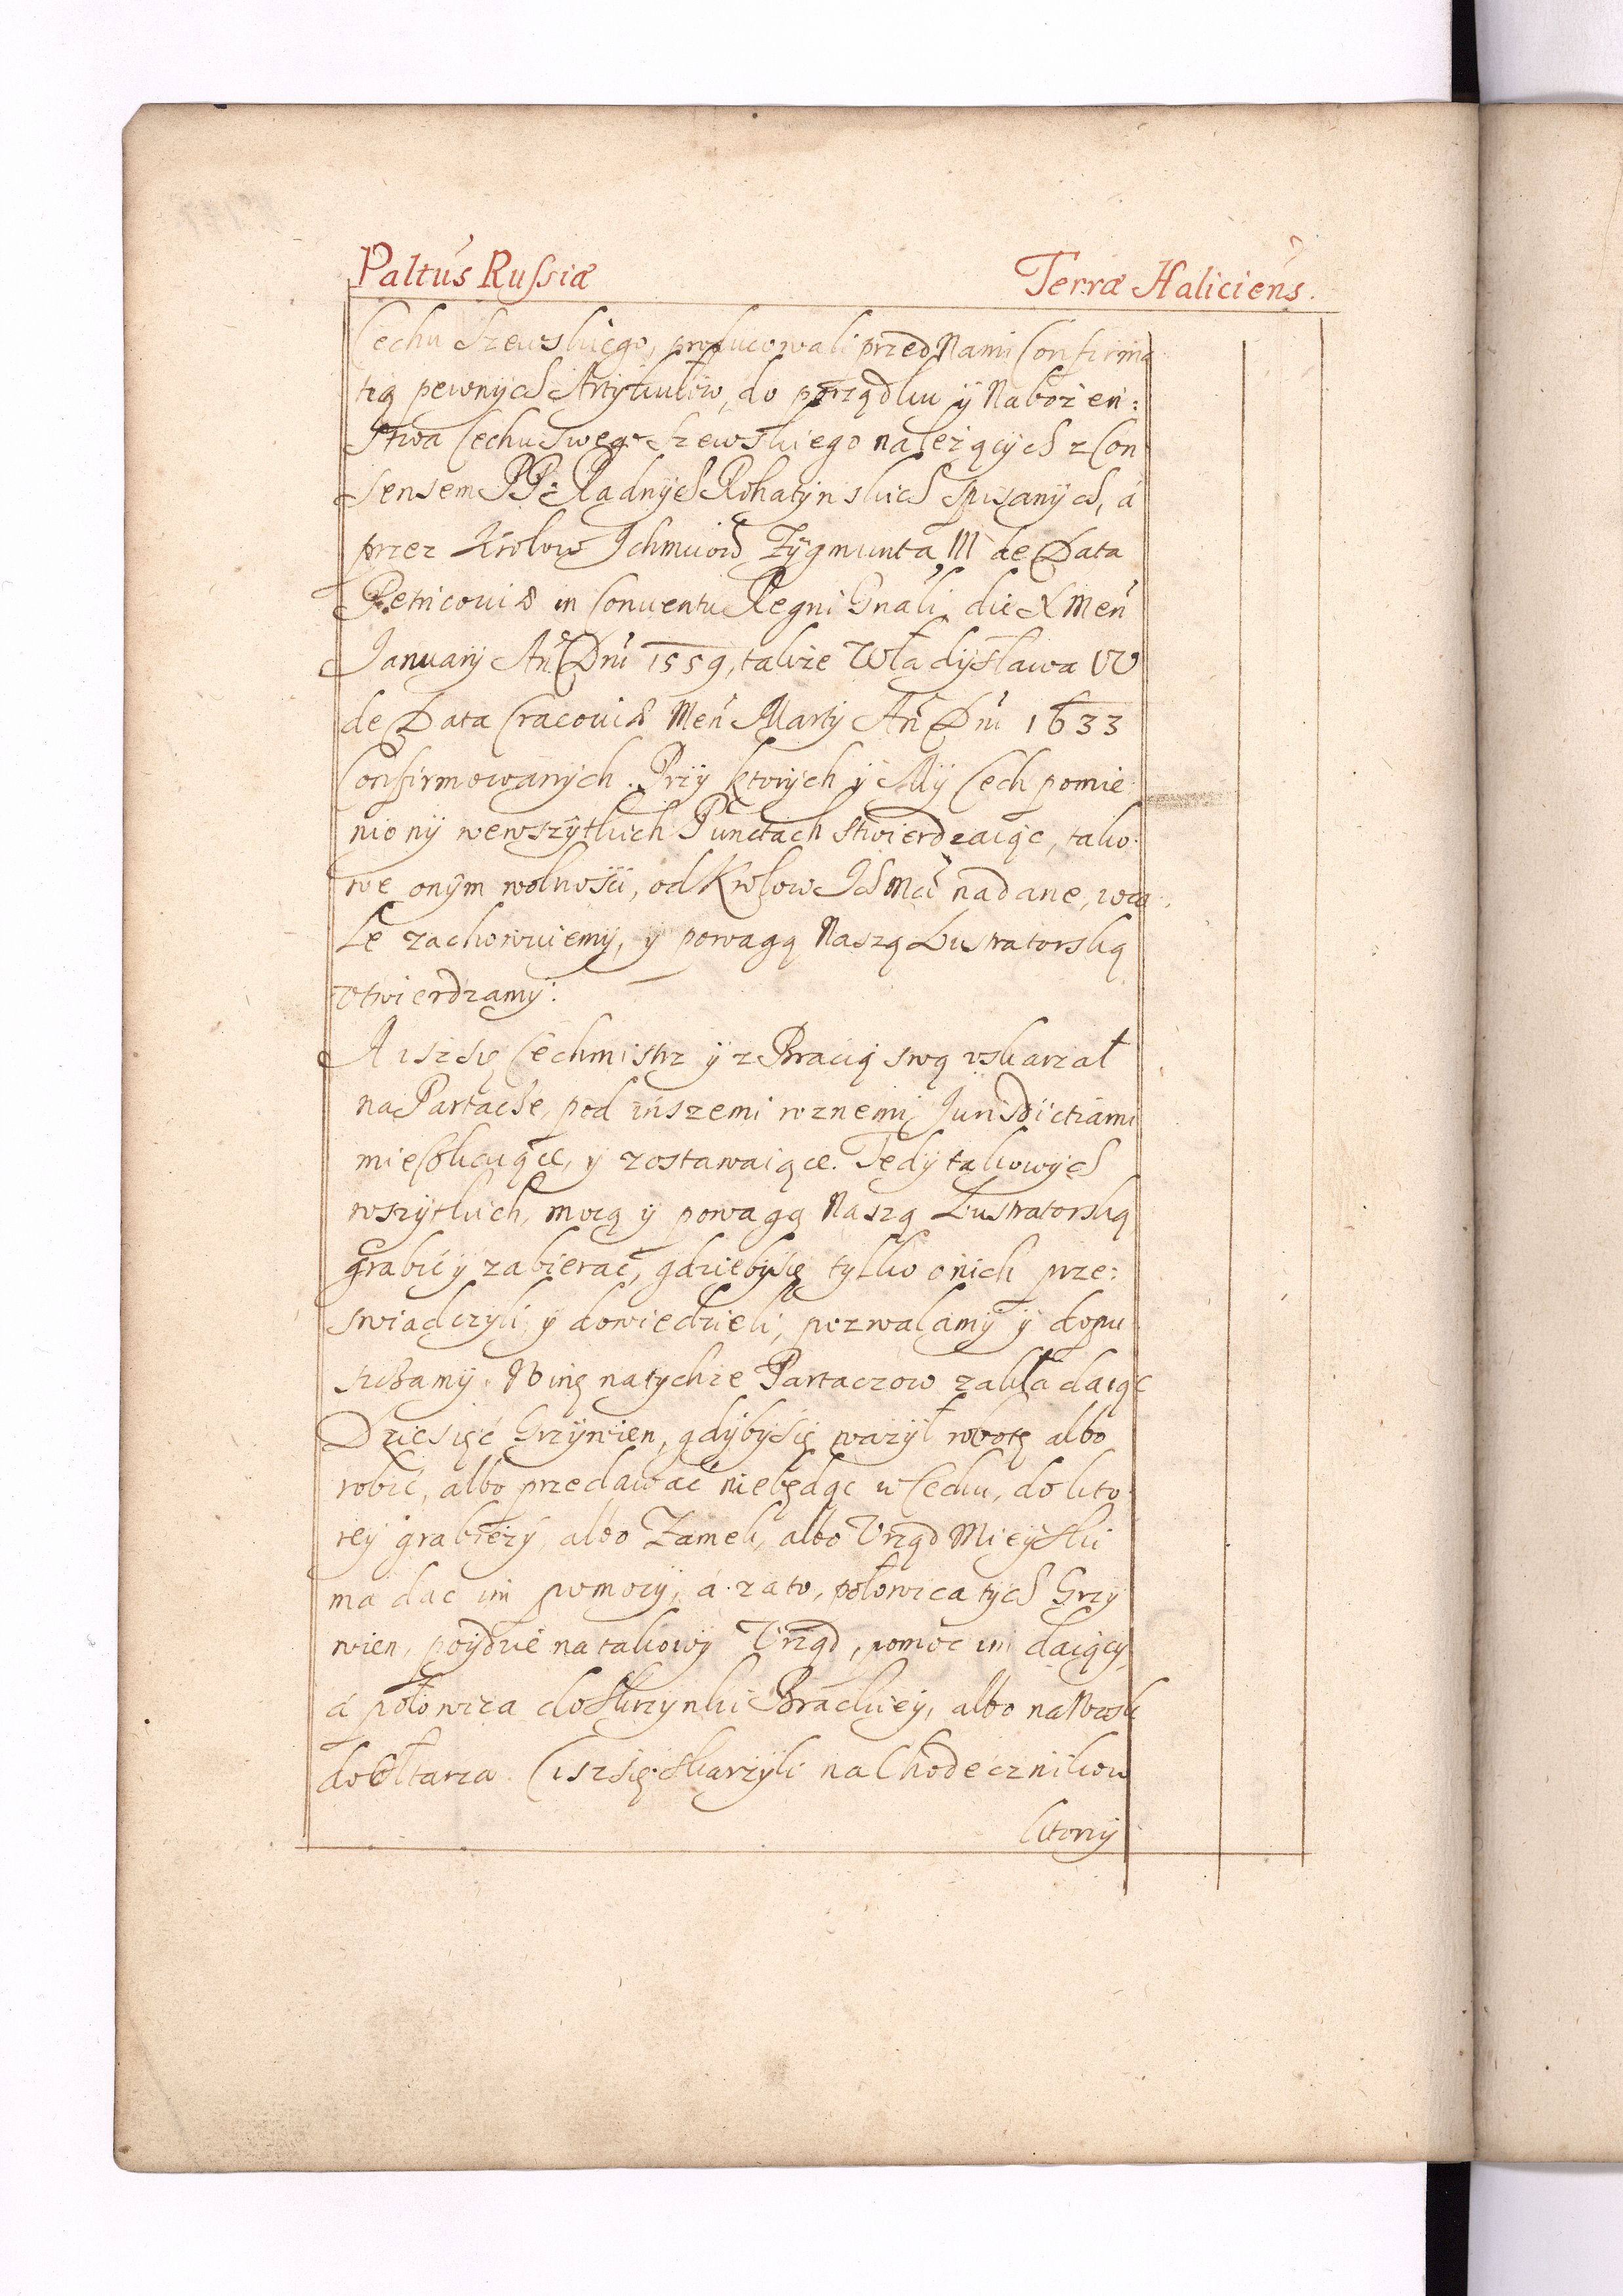 Paltus Russiæ Terræ Haliciens.
Cechu Szewskiego, producowali przed Nami Confirma
tią pewnych Artykułow, do porządku ÿ Nabożeń:
stwa Cechu Swego Szewskiego należących z Con
sensem PP: Radnych Rohatÿnskich spisanÿch, á
przez Krolow Ichmciow Zÿgmunta III de Data
Petricoviæ in Conventu Regni Gnãli die X Meñ
Januarÿ Añ Dñi 1559, także Władÿsława IV
de Data Cracoviæ Meñ Martÿ Añ Dñi 1633
Confirmowanych. Przÿ ktorÿch ÿ Mÿ Cech pomie
nionÿ we wszÿtkich Punctach stwierdzaiąc, tako
we onÿm wolnosci, od Krolow Ich Mći nadane, wca
le zachowuiemÿ, ÿ powagą Naszą Lustratorską
vtwierdzamÿ.
A isz się Cechmistrz ÿ z Bracią swą vskarzał
na Partacze, pod inszemi roznemi Jurisdictiami
mieszkaiące, ÿ zostawaiące. Tedÿ takowÿch
wszÿtkich, mocą ÿ powagą Naszą Lustratorską
grabić ÿ zabierać, gdzieby się tylko o nich prze:
swiadczyli, ÿ dowiedzieli, pozwalamÿ ÿ dopu
szczamÿ. Winę na tychże Partaczow zakładaiąc
Dziesięć Grzÿwien, gdÿbÿ się ważÿł robotę albo
robić, albo przedawać niebędąc w Cechu, do kto
reÿ grabieżÿ, albo Zamek, albo Vrząd Mieÿski
ma dac im pomocÿ, á za to, połowica tÿch Grzÿ
wien, poÿdzie na takowÿ Vrząd, pomoc im daiącÿ,
á połowica do Skrzynki Brackieÿ, albo na Wosk
do Ołtarza. Isz się skarżyli na Chodecznikow
ktorzÿ